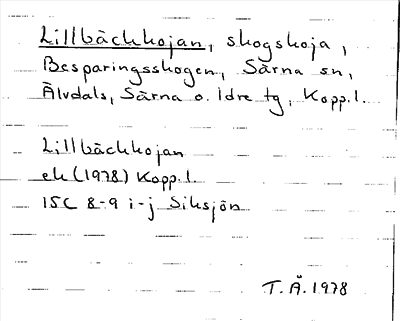 Lillbäckkojan, skogskoja,
Besparingsskogen, Särna sn,
Älvdals, Särna o. Idre tg, Kopp.l.
Lillbäckkojan
ek (1978) Kopp.l.
15C 8-9 i-j Siksjön
T.Ä. 1978